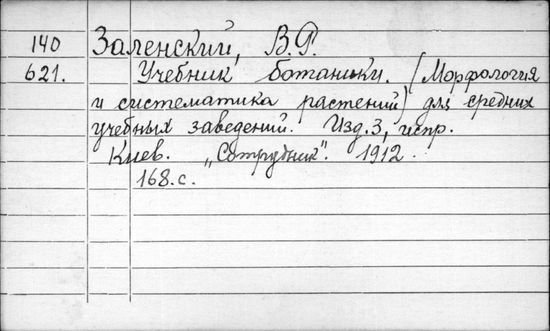 140 Заленский, В.Р.
621. Учебник ботаники. (Морфология
и систематика растений) для средних
учебных заведений. Изд. 3, испр.
Киев. „Сотрудник". 1912.
168.с.